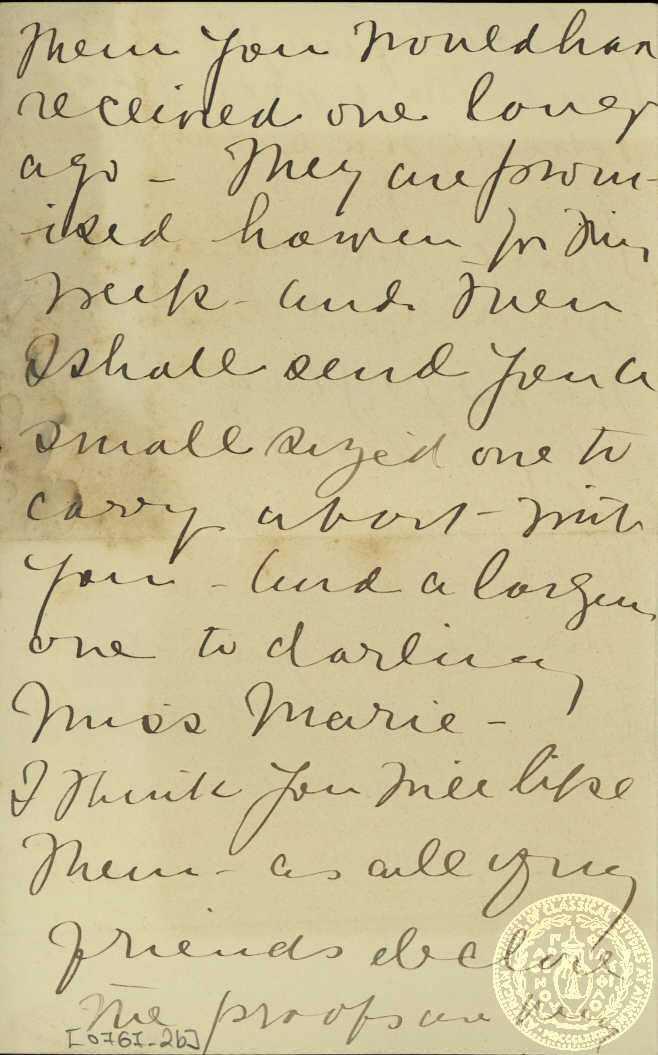 them you would hav
received one long
ago – They are prom-
ised however for this
week – and then
I shall send you a
small sized one to
carry about – with
you – and a larger
one to darling
Miss Marie –
I think you will like
them – as all of my
friends declare
the proofs are very
[0761-2b]